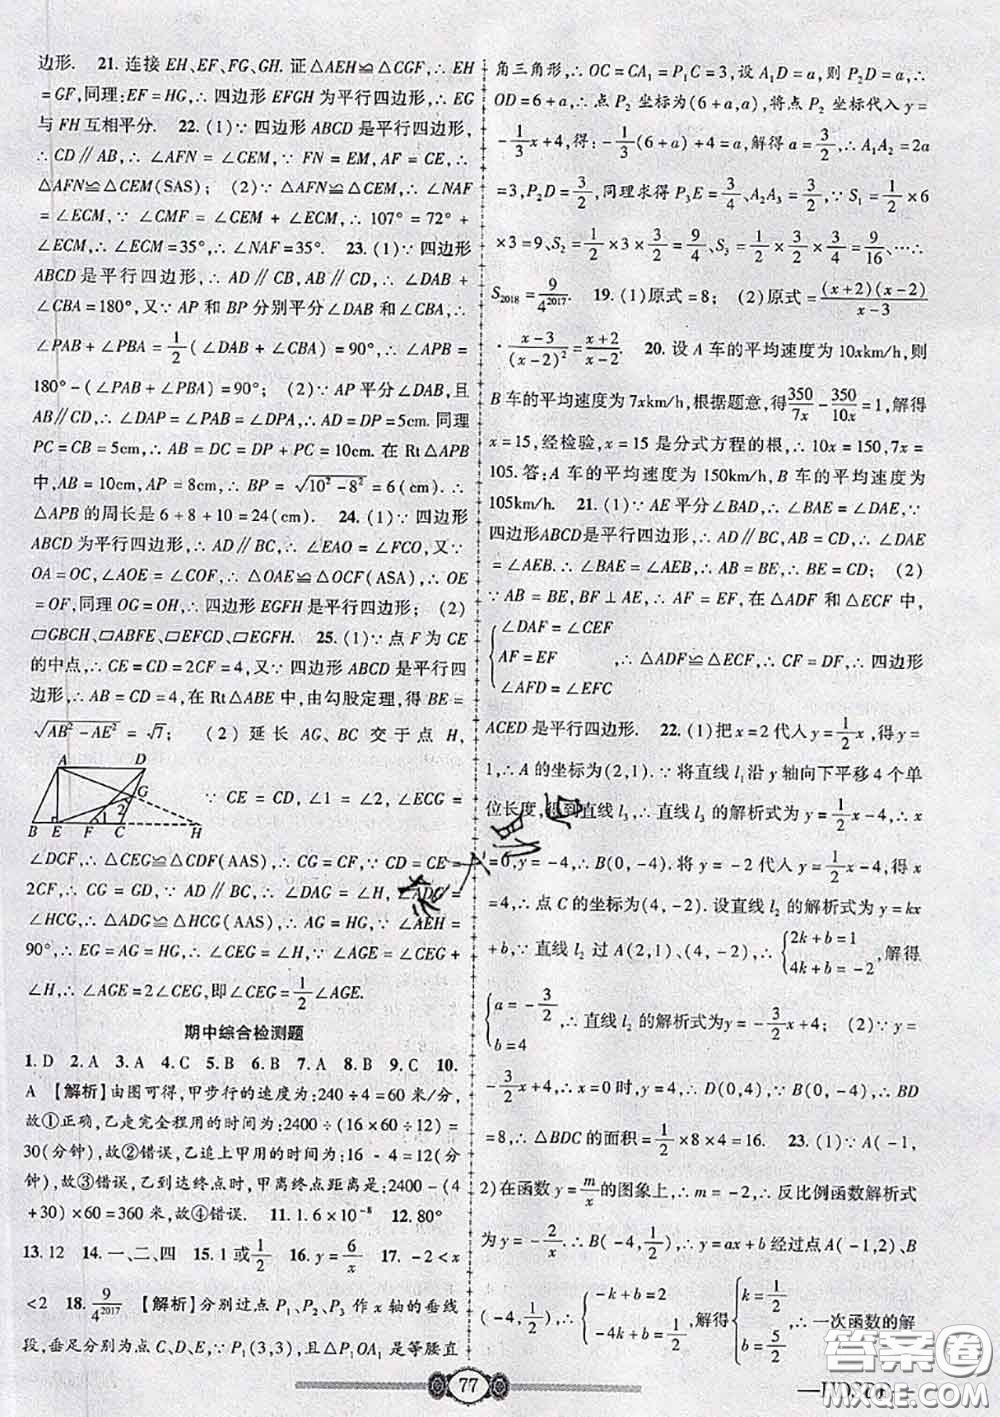 边形. 21. 连接 EH、EF、FG、GH. 证△AEH≌△CGF,∴ EH
= GF,同理:EF = HG,∴ 四边形 EFGH 为平行四边形,∴ EG
与 FH 互相平分. 22. (1)∵ 四边形 ABCD 是平行四边形,
∴ CD∥AB,∴ ∠AFN = ∠CEM,∵ FN = EM,AF = CE,∴
△AFN≌△CEM(SAS); (2)∵△AFN≌△CEM,∴ ∠NAF
= ∠ECM,∵ ∠CMF = ∠CEM + ∠ECM,∴ 107° = 72° +
∠ECM,∴ ∠ECM = 35°,∴ ∠NAF = 35°. 23. (1)∵ 四边形
ABCD 是平行四边形,∴ AD∥CB,AB∥CD,∴ ∠DAB +
∠CBA = 180°,又∵ AP 和 BP 分别平分∠DAB 和∠CBA,∴
∠PAB + ∠PBA = 1/2(∠DAB + ∠CBA) = 90°,∴ ∠APB =
180° - (∠PAB + ∠PBA) = 90°; (2)∵ AP 平分∠DAB,且
AB∥CD,∴ ∠DAP = ∠PAB = ∠DPA,∴ AD = DP = 5cm. 同理
PC = CB = 5cm,∴ AB = DC = DP + PC = 10cm. 在 Rt△APB
中,AB = 10cm,AP = 8cm,∴ BP = √(10² - 8²) = 6(cm). ∴
△APB 的周长是 6 + 8 + 10 = 24(cm). 24. (1)∵ 四边形
ABCD 为平行四边形,∴ AD∥BC,∴ ∠EAO = ∠FCO,又∵
OA = OC,∠AOE = ∠COF,∴ △OAE≌△OCF(ASA),∴ OE
= OF,同理 OG = OH,∴ 四边形 EGFH 是平行四边形; (2)
▱GBCH、▱ABFE、▱EFCD、▱EGFH. 25. (1)∵ 点 F 为 CE
的中点,∴ CE = CD = 2CF = 4,又∵ 四边形 ABCD 是平行四
边形,∴ AB = CD = 4,在 Rt△ABE 中,由勾股定理,得 BE =
√(AB² - AE²) = √7; (2) 延长 AG、BC 交于点 H,
A D G 2 1 B E F C H
∵ CE = CD, ∠1 = ∠2, ∠ECG =
∠DCF,∴ △CEG≌△CDF(AAS),∴ CG = CF,∵ CD = CE =
2CF,∴ CD = 2CG,∵ AD∥BC,∴ ∠DAG = ∠H, ∠ADG =
∠HCG,∴ △ADG≌△HCG(AAS),∴ AG = HG,∵ ∠AEH =
90°,∴ EG = AG = HG,∴ ∠CEG = ∠H,∵ ∠AGE = ∠CEG +
∠H,∴ ∠AGE = 2∠CEG,即∠CEG = 1/2∠AGE.
期中综合检测题
1. D 2. A 3. A 4. C 5. B 6. B 7. A 8. B 9. C 10.
A 【解析】由图可得,甲步行的速度为:240 ÷ 4 = 60 米/分,
故①正确,乙走完全程用的时间为:2400 ÷ (16 × 60 ÷ 12) =
30(分钟),故②错误,乙追上甲用的时间为:16 - 4 = 12(分
钟),故③错误,乙到达终点时,甲离终点距离是:2400 - (4
+ 30) × 60 = 360 米,故④错误. 11. 1.6 × 10⁻⁸ 12. 80°
13. 12 14. 一、二、四 15. 1 或 1/2 16. y = 6/x 17. -2 < x
< 2 18. 9/4²⁰¹⁷ 【解析】分别过点 P₁、P₂、P₃ 作 x 轴的垂线
段,垂足分别为点 C、D、E,∵ P₁(3,3),且△P₁OA₁ 是等腰直
角三角形,∴ OC = CA₁ = P₁C = 3,设 A₁D = a,则 P₂D = a,∴
OD = 6 + a,∴ 点 P₂ 坐标为(6 + a,a),将点 P₂ 坐标代入 y =
-1/3x + 4,得: -1/3(6 + a) + 4 = a,解得 a = 3/2,∴ A₁A₂ = 2a
= 3,P₂D = 3/2,同理求得 P₃E = 3/4、A₂A₃ = 3/2,∵ S₁ = 1/2 × 6
× 3 = 9、S₂ = 1/2 × 3 × 3/2 = 9/4、S₃ = 1/2 × 3/2 × 3/4 = 9/16、…∴
S₂₀₁₈ = 9/4²⁰¹⁷. 19. (1)原式 = 8; (2)原式 = (x+2)(x-2)/(x-3)
· (x-3)/(x-2)² = (x+2)/(x-2). 20. 设 A 车的平均速度为 10xkm/h,则
B 车的平均速度为 7xkm/h,根据题意,得 350/7x - 350/10x = 1,解得
x = 15,经检验,x = 15 是分式方程的根,∴ 10x = 150,7x =
105. 答:A 车的平均速度为 150km/h,B 车的平均速度为
105km/h. 21. (1)∵ AE 平分∠BAD,∴ ∠BAE = ∠DAE,∵
四边形ABCD是平行四边形,∴ AD∥BC,CD = AB,∴ ∠DAE
= ∠AEB. ∴ ∠BAE = ∠AEB,∴ AB = BE,∴ BE = CD; (2)
∵ AB = BE,BF ⊥ AE,∴ AF = EF,在△ADF 和△ECF 中,
{∠DAF = ∠CEF
AF = EF ,∴ △ADF≌△ECF,∴ CF = DF,∴ 四边形
∠AFD = ∠EFC
ACED 是平行四边形. 22. (1)把 x = 2 代入 y = 1/2x,得 y =
1,∴ A 的坐标为(2,1). ∵ 将直线 l₁ 沿 y 轴向下平移 4 个单
位长度,得到直线 l₃,∴ 直线 l₃ 的解析式为 y = 1/2x - 4,∴ x
= 0,y = -4,∴ B(0, -4). 将 y = -2 代入 y = 1/2x - 4,得 x
= 4,∴ 点 C 的坐标为(4, -2). 设直线 l₂ 的解析式为 y = kx
+ b,∵ 直线 l₂ 过 A(2,1)、(4, -2),∴ {2k + b = 1 4k + b = -2 ,解得
{a = -3/2 b = 4 ,∴ 直线 l₂ 的解析式为 y = -3/2x + 4; (2)∵ y =
-3/2x + 4,∴ x = 0 时,y = 4,∴ D(0,4). ∵ B(0, -4),∴ BD
= 8,∴ △BDC 的面积 = 1/2 × 8 × 4 = 16. 23. (1)∵ A( -1,
2)在函数 y = m/x 的图象上,∴ m = -2,∴ 反比例函数解析式
为 y = -2/x,∴ B( -4, 1/2),∵ y = ax + b 经过点 A( -1,2)、B
( -4, 1/2),∴ { -k + b = 2 -4k + b = 1/2 ,解得 {k = 1/2 b = 5/2 ,∴ 一次函数的解
77
答案圈